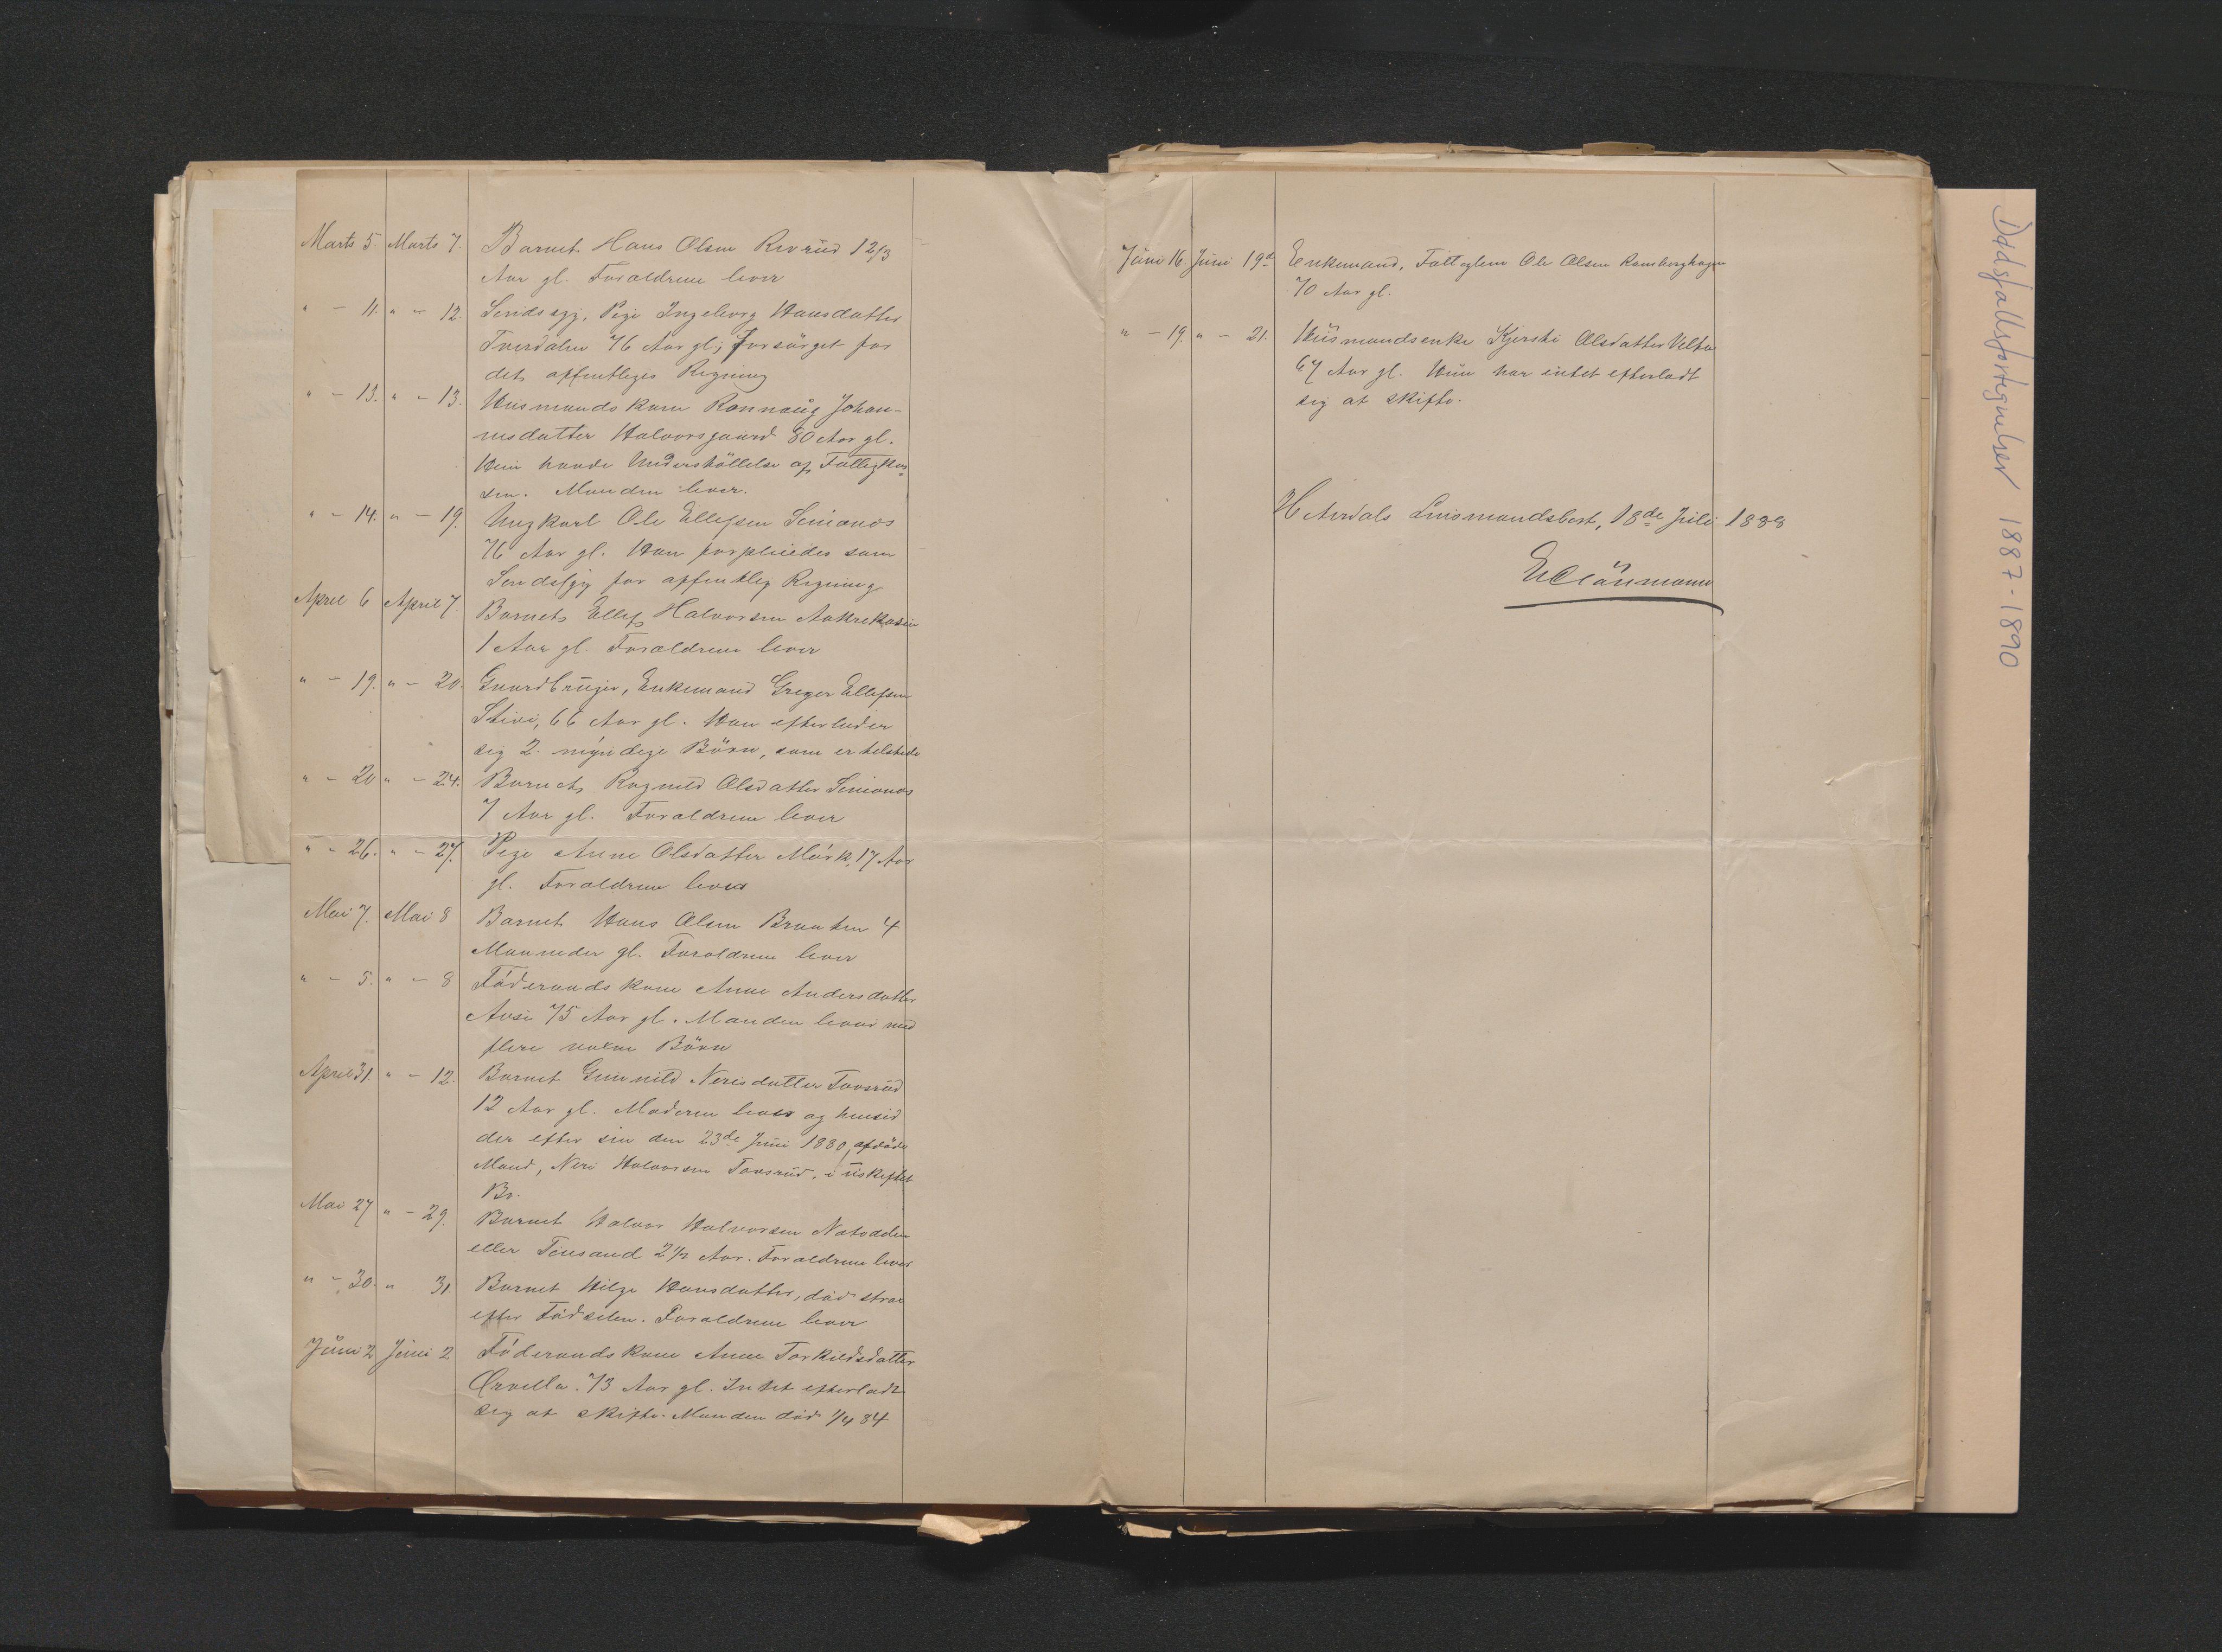 Marts 5. Marts 7. Barnet Hans Olsen Rverud 1 2/3
Aar gl. Forældrene lever
" - 11. " - 12. Sindssyg, Pige Ingeborg Hansdatter
Tverdalen 76 Aar gl; Forsörget for
dets offentliges Regning
" - 13. " - 13. Huusmandskone Rønnaug Johan-
nesdatter Halvorsgaard 80 Aar gl.
Hun havde Understöttelse af Fattigkas-
sen. Manden lever.
" - 14. " - 19. Ungkarl Ole Ellefsen
76 Aar gl. Han forpleiedes som
Sindssyg for offentlig Regning
April 6 April 7. Barnet Ellef Halvorsen
1 Aar gl. Forældrene lever
" - 19. " - 20. Gaardbruger, Enkemand Greger Ellefsen
Stivi, 66 Aar gl. Han efterlader
sig 2 myndige Börn, som er tilstede
" - 20 " - 24. Barnet Ragnild Olsdatter
7 Aar gl. Forældrene lever
" - 26. " - 27. Pige Anne Olsdatter Mörk, 17 Aar
gl. Forældrene lever
Mai 7. Mai 8 Barnet Hans Olsen Braaten 4
Maaneder gl. Forældrene lever
" - 5. " - 8 Föderaadskone Anne Andersdatter
Aasi 75 Aar gl. Manden lever med
flere voxne Börn
April 31. " - 12. Barnet Gunnild Nerisdatter Tovsrud
12 Aar gl. Moderen lever og hensid
der efter sin den 23de Juni 1880 afdöde
Mand, Neri Halvorsen Tovsrud, i uskiftet
Bo.
Mai 27 " - 29. Barnet Halvor Halvorsen Notodden
eller Tinsand 2 1/2 Aar. Forældrene lever
" - 30. " 31. Barnet Hilge Hansdatter, död strax
efter Födselen. Forældrene lever
Juni 2 Juni 2 Föderaadskone Anne Torkildsdatter
Ørvella. 73 Aar gl. Intet efterladt
sig at skifte. Manden död 1/4 84
Juni 16. Juni 19de Enkemand, Fattiglem Ole Olsen Ramberghagen
70 Aar gl.
" - 19. " - 21. Huusmandsenke Kjersti Olsdatter
67 Aar gl. Hun har intet efterladt
sig at skifte.
Lensmandsbest, 18de Juli 1888
Dødsfallsfortegnelser 1887-1890